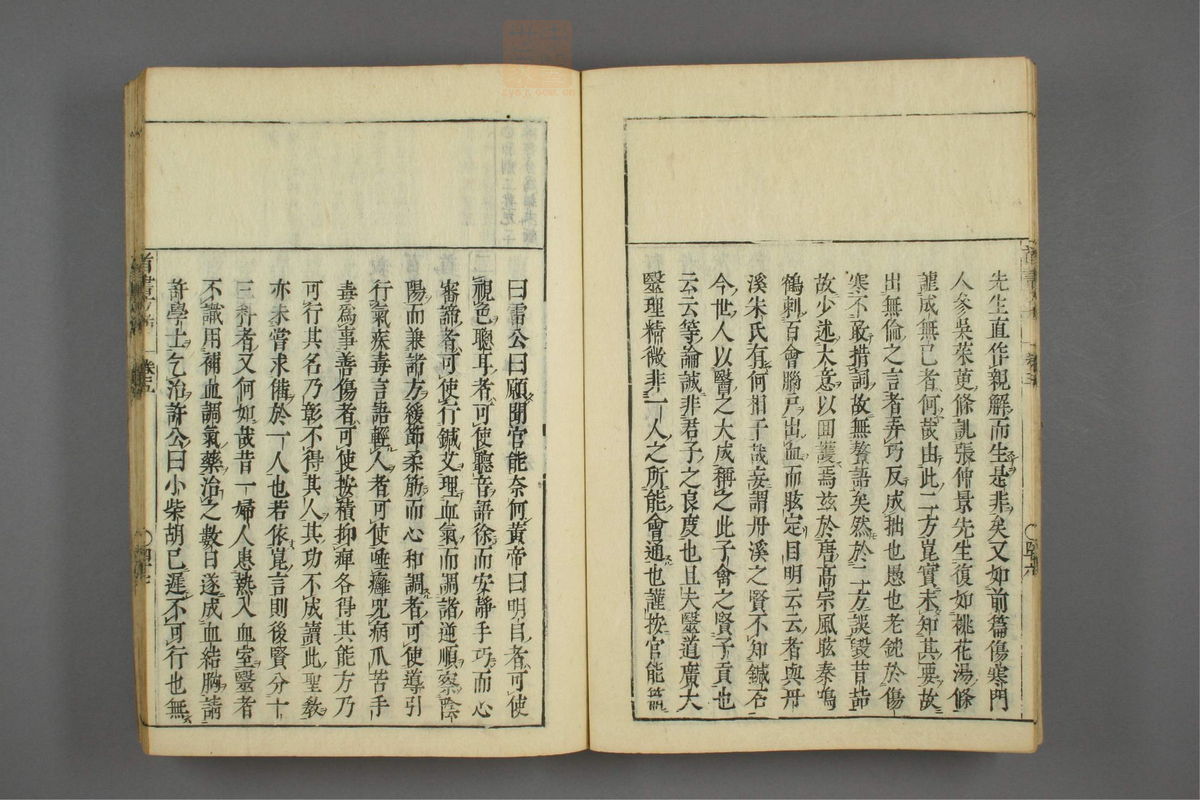 先生直作親解而生是非矣又如前篇傷寒門
人參吳茱萸條訕張仲景先生復如桃花湯條
謹成無已者何哉由此二方崑實未知其要故
出無倫之言者弄巧反成拙也愚也老鈍於傷
寒不敢措詞故無贅語矣然於二方誤毀昔喆
故少述大意以回護焉玆於唐高宗風眩秦鳴
鶴刺百會腦戶出血而眩定目明云云者與丹
溪朱氏有何相干哉妄謂丹溪之賢不知鍼石
今世人以醫之大成稱之此子禽之賢子貢也
云云等論誠非君子之良度也且夫醫道廣大
醫理精微非一人之所能會通也謹按官能篇
曰雷公曰願聞官能奈何黃帝曰明目者可使
視色聰耳者可使聽音語徐而安靜手巧而心
審諦者可使行鍼艾理血氣而調諸逆順察陰
陽而兼諸方緩節柔筋而心和調者可使導引
行氣疾毒言語輕人者可使唾癰咒病爪苦手
毒爲事善傷者可使按積抑痺各得其能方乃
可行其名乃彰不得其人其功不成讀此聖敎
亦未嘗求備於一人也若依崑言則後賢分十
三科者又何如哉昔一婦人患熱入血室醫者
不識用補血調氣藥治之數日遂成血結胸請
許學士乞治許公曰小柴胡已遲不可行也無
卷五